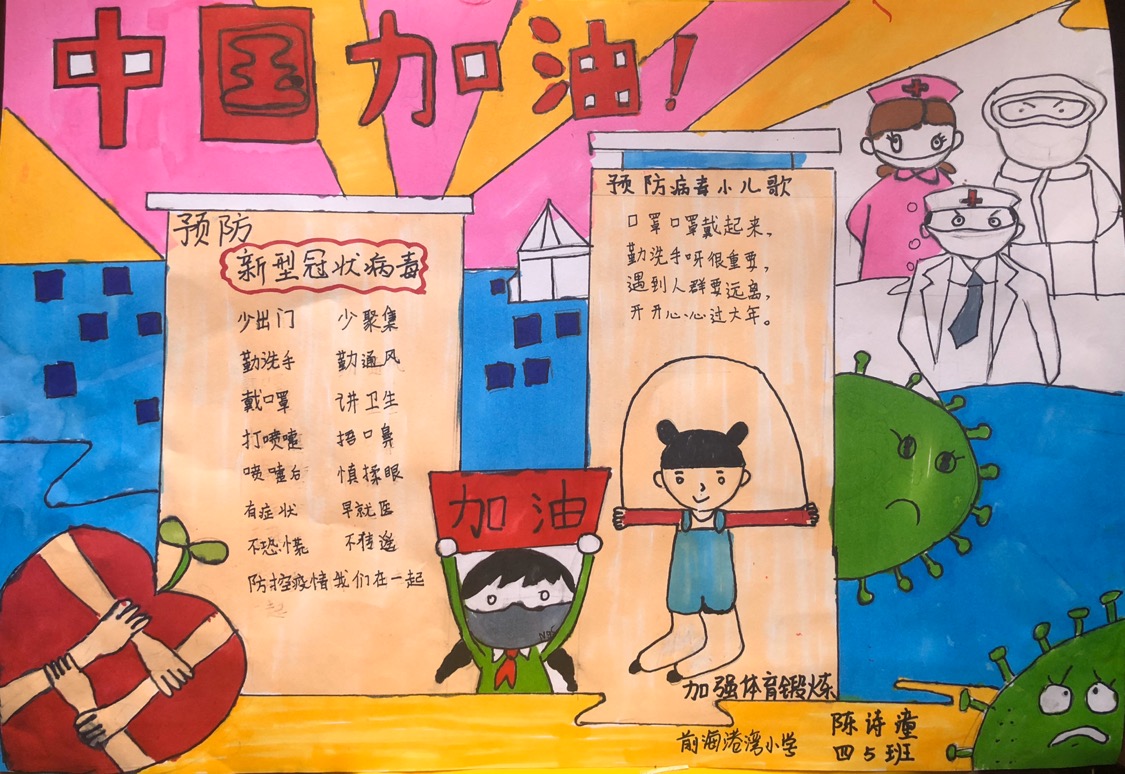 中国加油！
预防
新型冠状病毒
少出门 少聚集
勤洗手 勤通风
戴口罩 讲卫生
打喷嚏 捂口鼻
喷嚏后 慎揉眼
有症状 早就医
不恐慌 不传谣
防控疫情我们在一起
预防病毒小儿歌
口罩口罩戴起来，
勤洗手呀很重要，
遇到人群要远离，
开开心心过大年。
加油
加强体育锻炼
前海港湾小学
陈诗潼
四5班